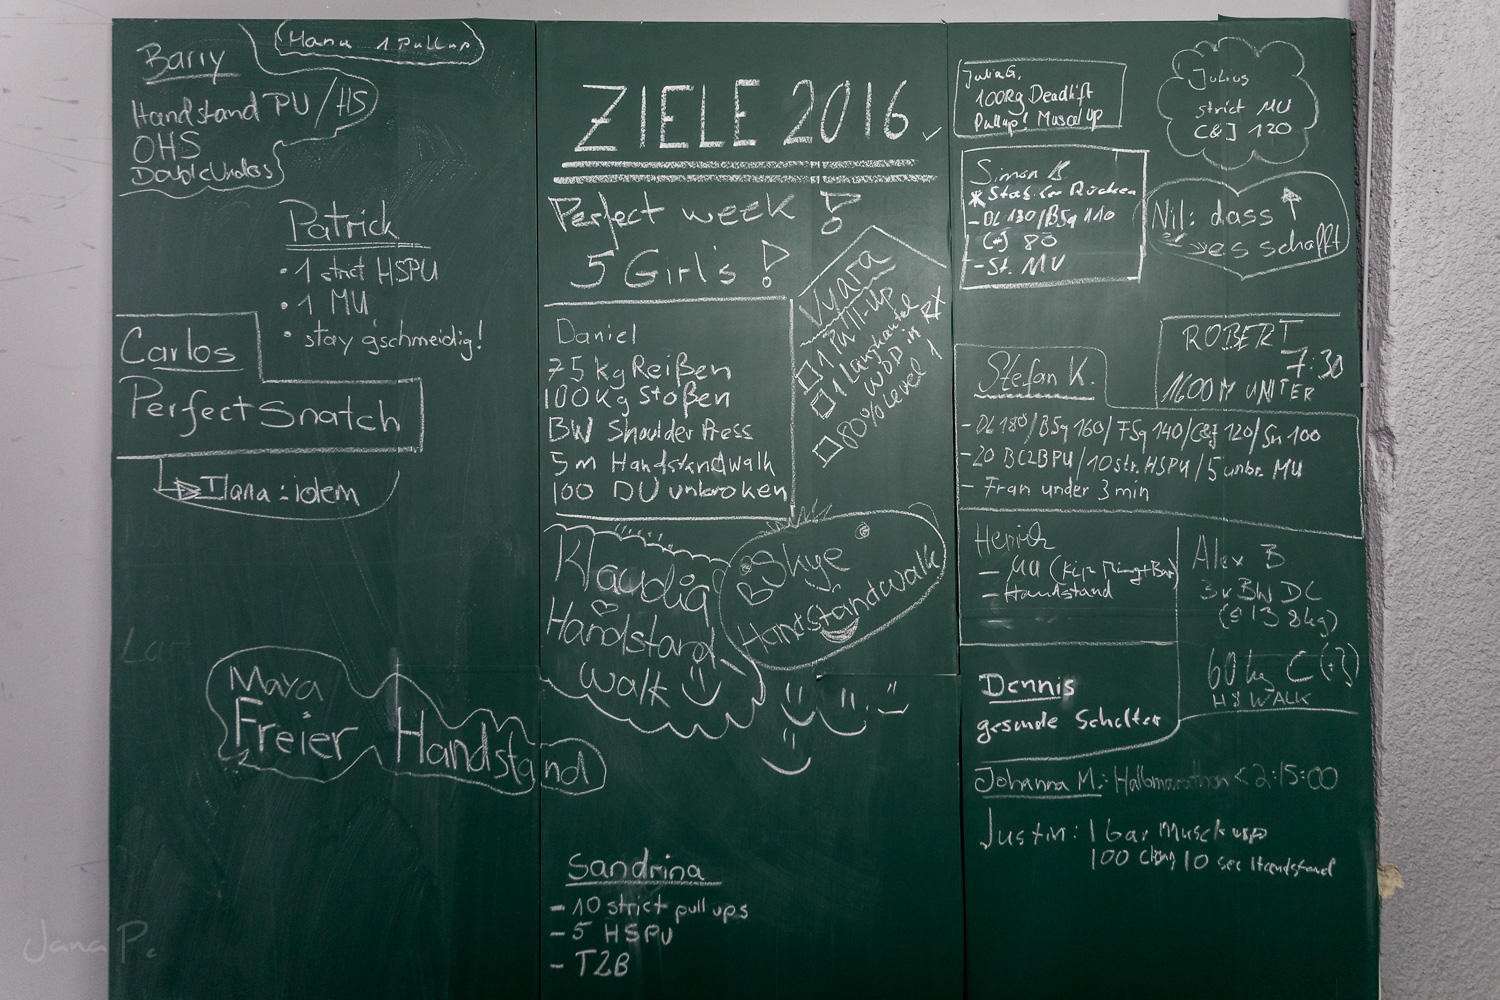 Barry
Handstand PU/HS
OHS
Double Unders
1 Pull up
Patrick
• 1 strict HSPU
• 1 MU
• stay gschmeidig!
Carlos
Perfect Snatch
Ilana: idem
Mava
Freier Handstand
Jana P.
ZIELE 2016
Perfect week !
5 Girl's !
Daniel
75 kg Reißen
100 kg Stoßen
BW Shoulder Press
5m Handstandwalk
100 DU unbroken
1 Pull-Up
1 Langhantel
WOD in RX
80% Level 1
Klaudia
Handstand
walk
Skye
Handstandwalk
Sandrina
- 10 strict pull ups
- 5 HSPU
- T2B
Julia G.
100kg Deadlift
Pullup! Muscel Up
Julius
strict MU
C&J 120
Simon B
Rücken
- DL 130/BSq 110
C+J 80
- St. MU
Nil: dass
es schafft
ROBERT
7:30
1600M UNTER
Stefan K.
- DL 180/BSq 160/FSq 140/C&J 120/Sn 100
- 20 BC2BPU/10 str. HSPU/5 unbr. MU
- Fran under 3 min
- MU (Kip Ring+Bar)
- Handstand
Alex B
3x BW DL
60 kg C
HS WALK
Dennis
gesunde Schulter
Johanna M.: Halbmarathon < 2:15:00
Justin: 1 bar Muscle up
100 10 sec Handstand